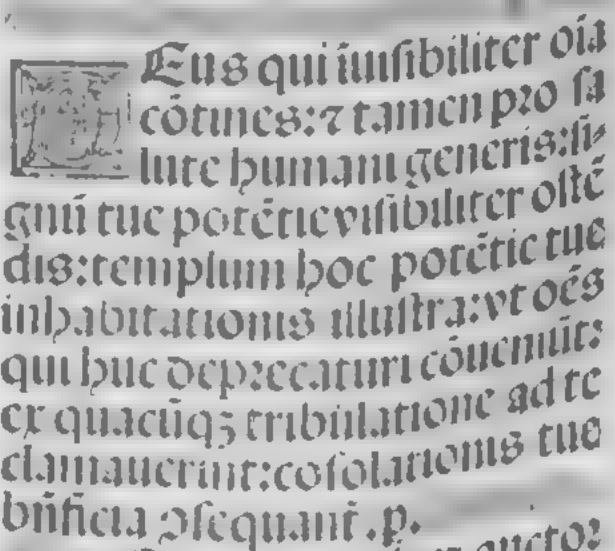 DEus qui īuisibiliter oīa
cōtines: ⁊ tamen pro sa
lute humani generis: si-
gnū tue potētie visibiliter ostē
dis: templum hoc potētie tue
inhabitationis illustra: vt oēs
qui huc deprecaturi cōueniūt:
ex quacūqꝫ tribulatione ad te
clamauerint: cōsolationis tue
bn̄ficia ↄsequant᷑ .p.
auctor